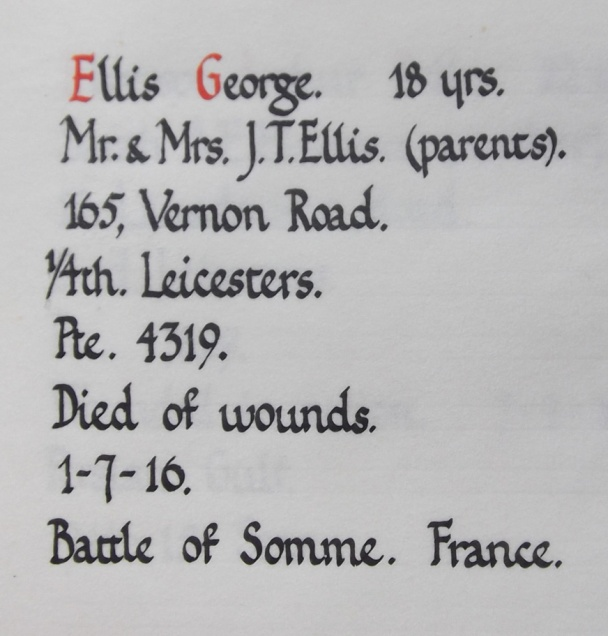 Ellis George. 18 yrs.
Mr. & Mrs. J.T.Ellis. (parents).
165, Vernon Road.
1/4th. Leicesters.
Pte. 4319.
Died of wounds.
1-7-16.
Battle of Somme. France.